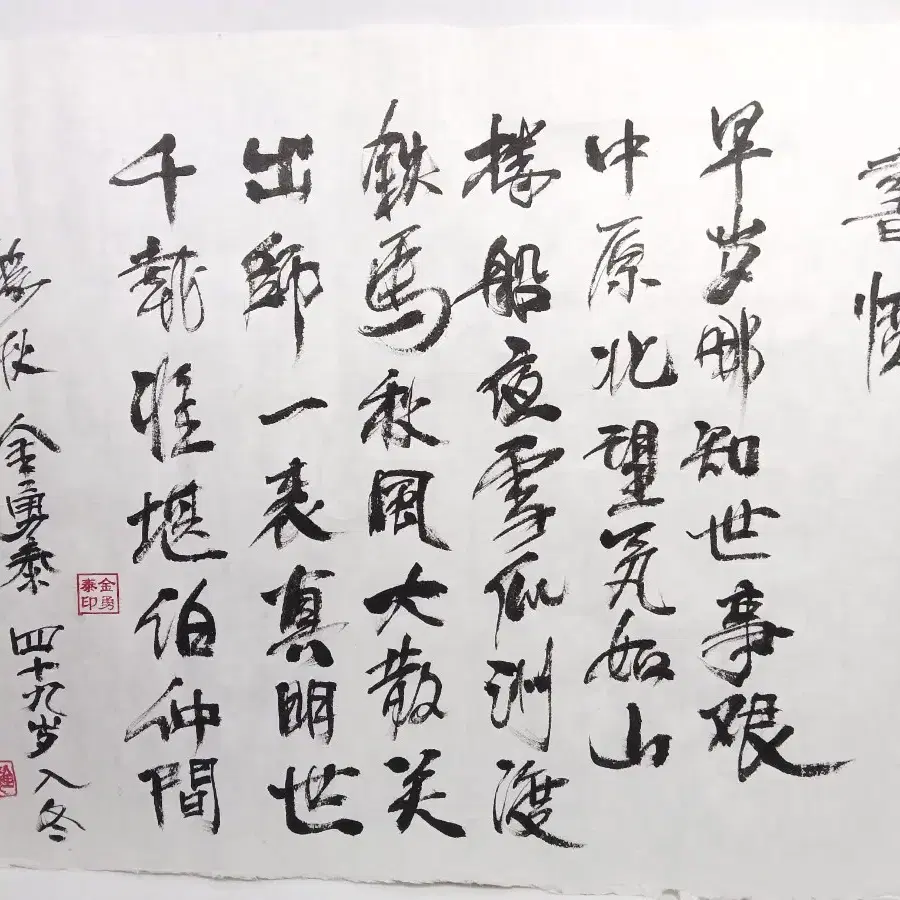 書憤
早岁那知世事艰
中原北望气如山
楼船夜雪瓜洲渡
鉄馬秋風大散关
出師一表真明世
千載谁堪伯仲間
秋 金勇泰 四十九岁入冬
金勇泰印